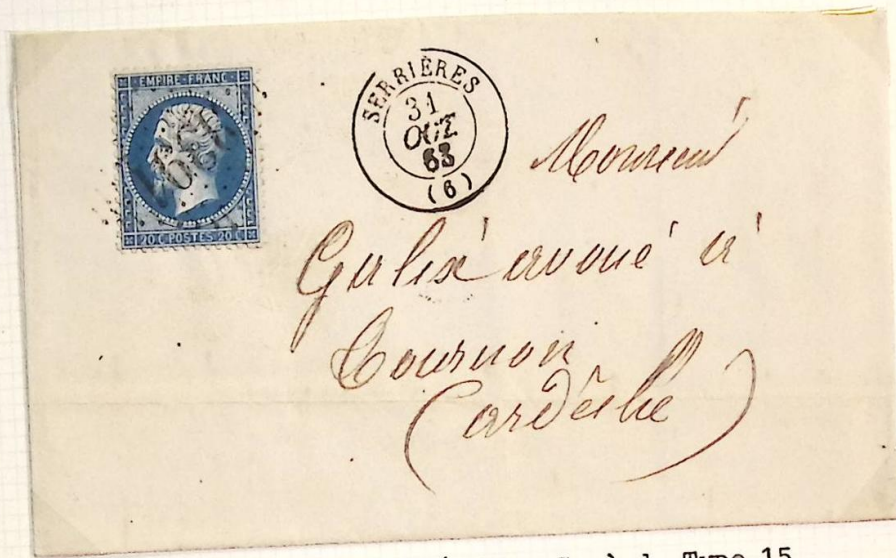 EMPIRE FRANC
20 C POSTES 20 C
SERRIÈRES
31
OCT
63
(6)
Monsieur
Galix avoué à
Tournon
(ardèche)
Type 15